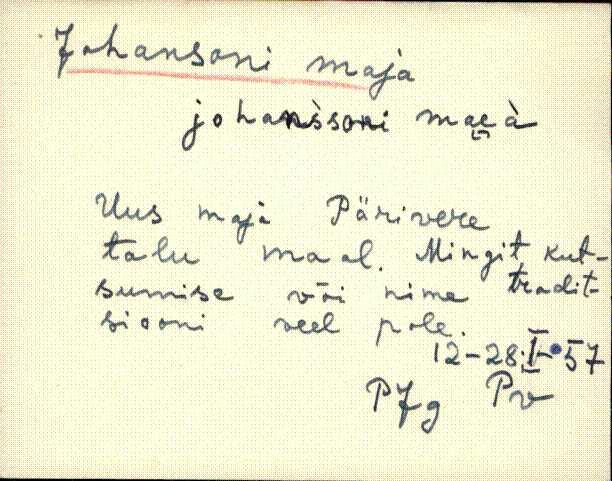 Johansoni maja
johan̄s̀soni maeà
Uus maja Pärivere
talu maal. Mingit kut-
sumise või nime tradit-
siooni veel pole.
12-28.I-57
PJg Pv